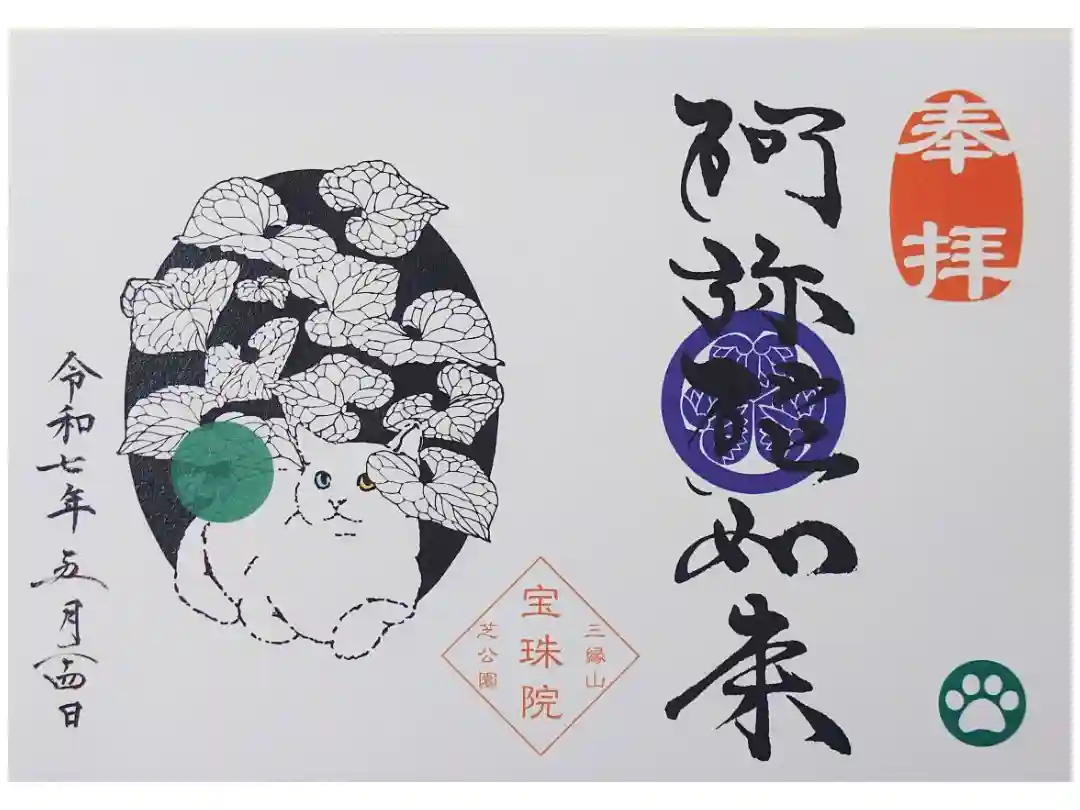 奉拝
阿弥陀如来
三縁山
宝珠院
芝公園
令和七年五月十四日